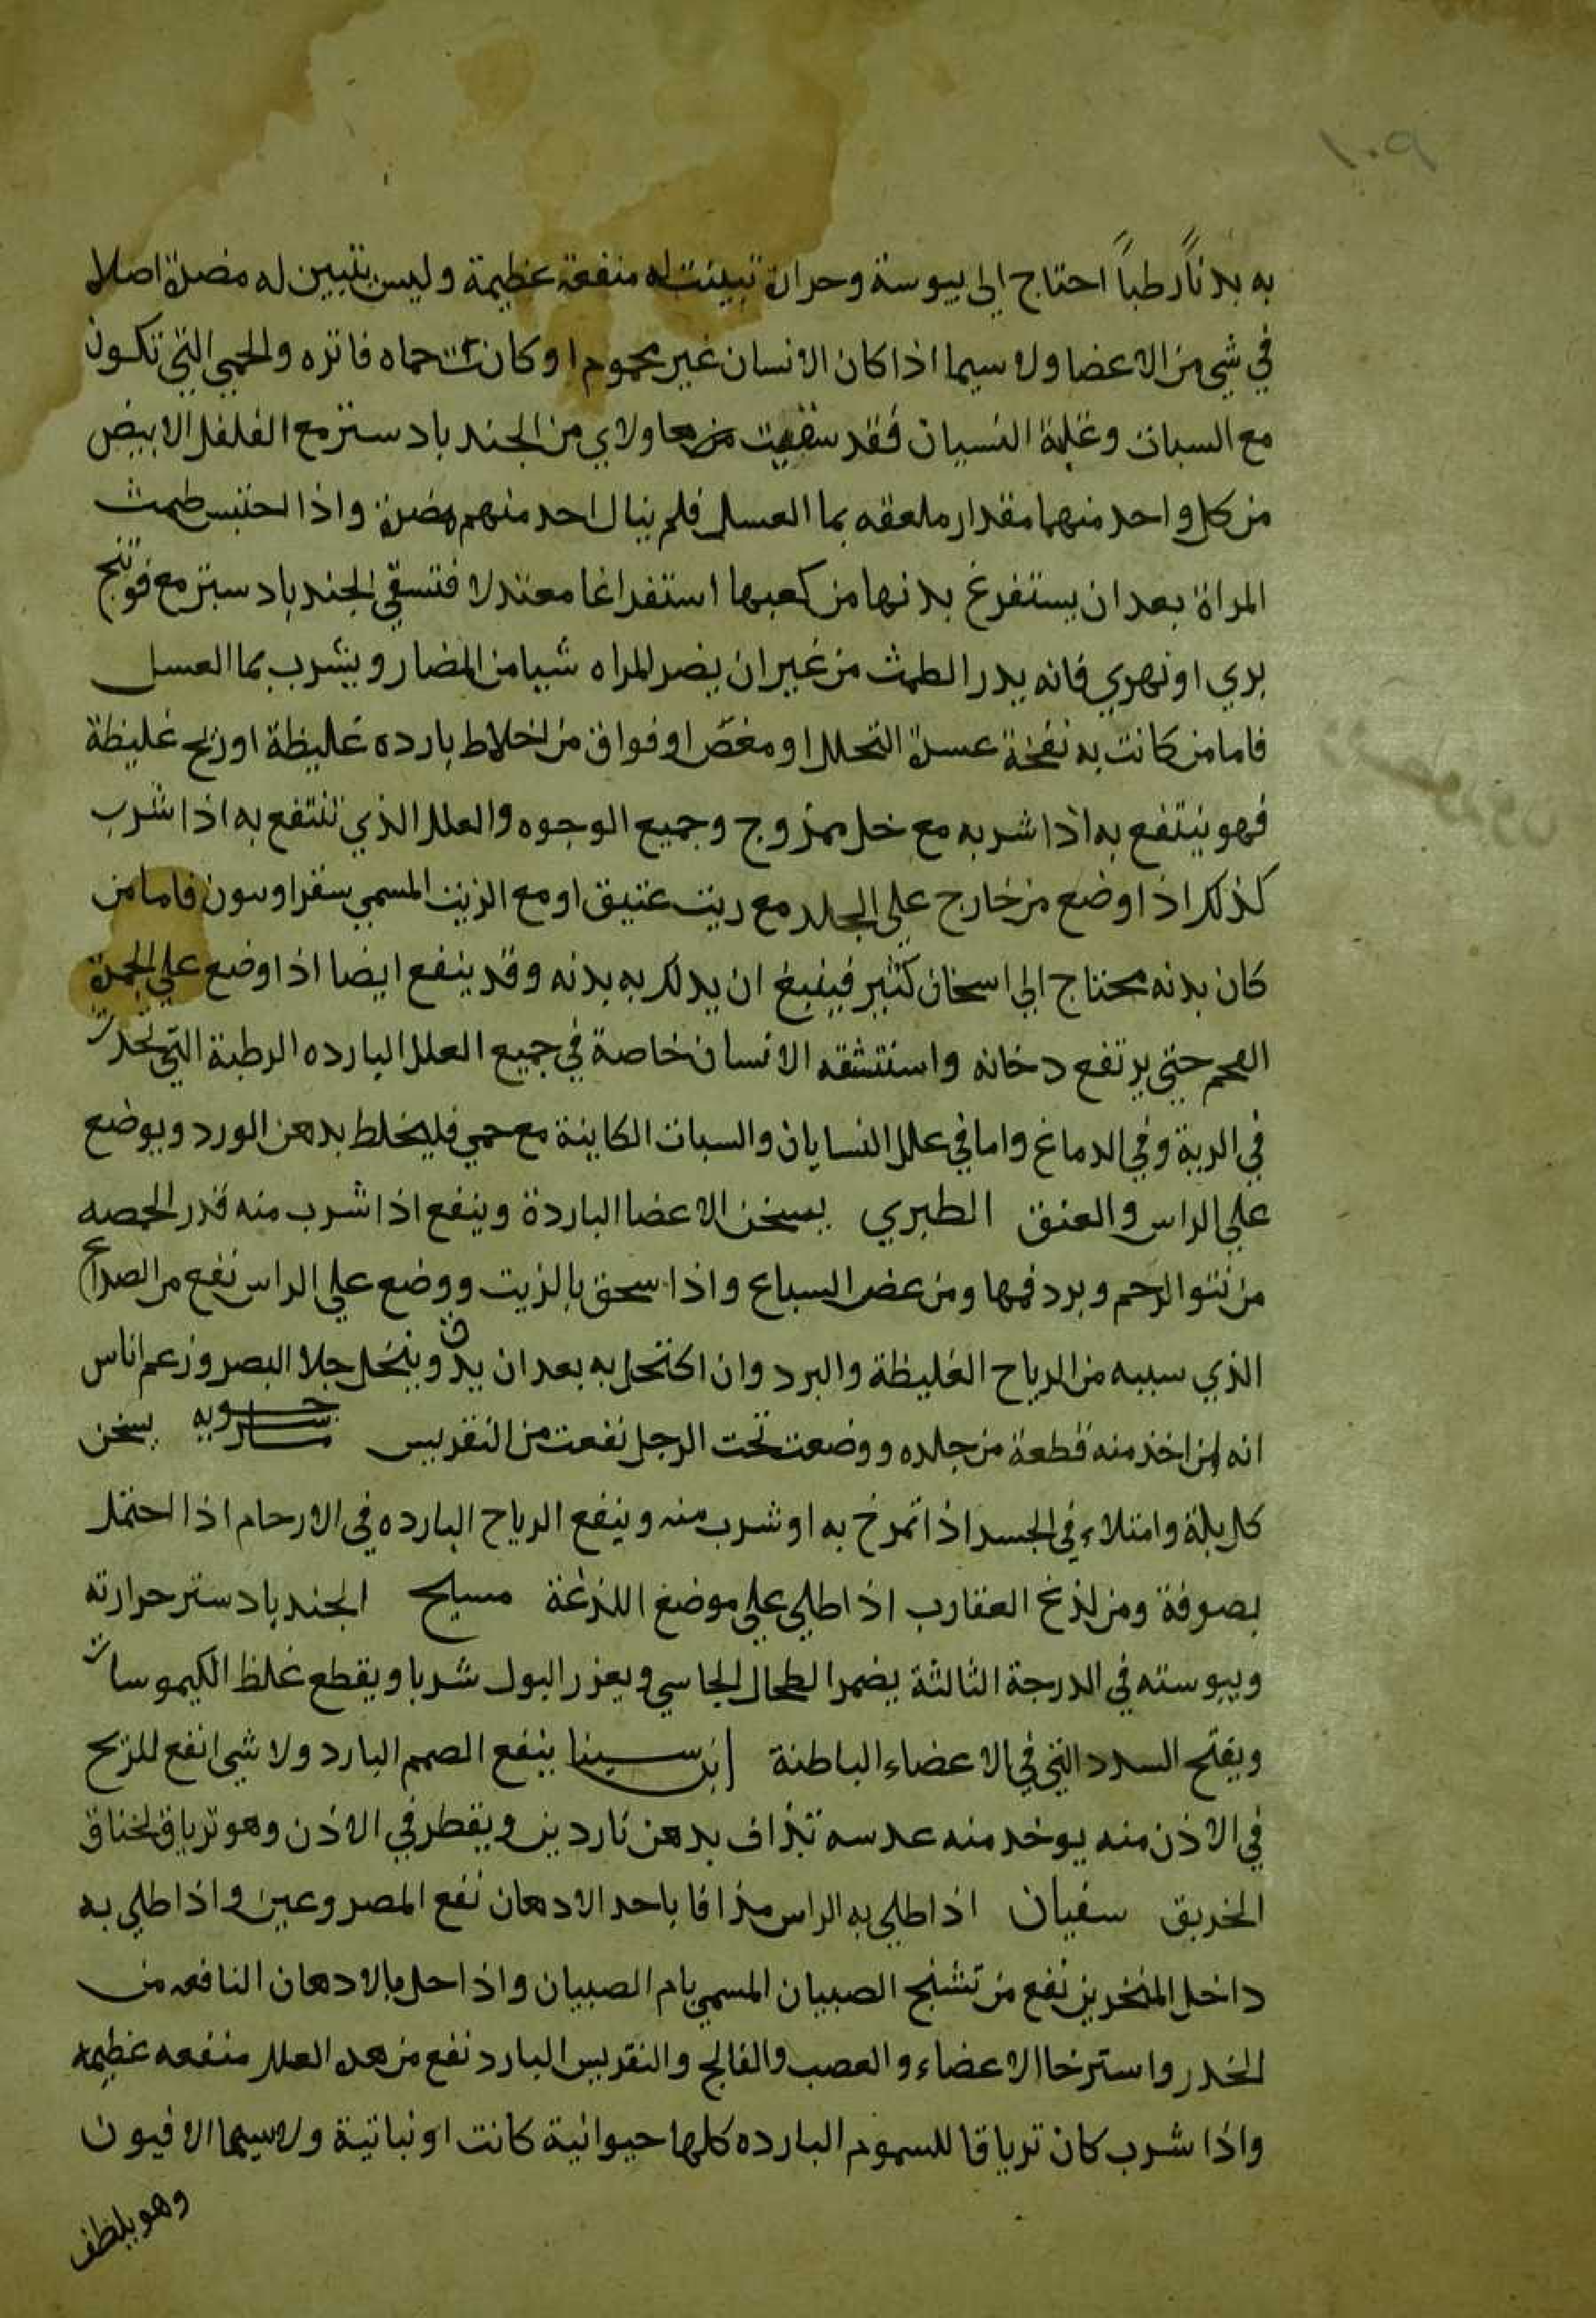 به بدناً رطباً احتاج الى يبوسة وحراة تبينت له منفعة عظيمة وليس يتبين له مضرة اصلا
في شي من الاعضا ولا سيما اذا كان الانسان غير محموم او كانت حماه فاتره والحمي التي تكون
مع السبات وغلبة النسيان فقد سقيت مرضعا ولاي من الجند بادستر مع الفلفل الابيض
من كل واحد منهما مقدار ملعقه بما العسل فلم ينال احد منهم مضرة واذا احتبس طمث
المراة بعد ان يستفرغ بدنها من كعبها استفراغا معتدلا فتسقي الجند بادستر مع فوتنج
بري او نهري فانه يدر الطمث من غير ان يضر المراه شيا من المضار ويشرب بما العسل
فاما من كانت به نفخة عسرة التحلل او مغص او فواق من اخلاط بارده غليظة او ريح غليظة
فهو ينتفع به اذا شربه مع خل ممزوج وجميع الوجوه والعلل الذي تنتفع به اذا شرب
كذلك اذا وضع من خارج علي الجلد مع زيت عتيق او مع الزيت المسمي سقراوسون فاما من
كان بدنه محتاج الي اسخان كثير فينبغ ان يدلك به بدنه وقد ينفع ايضا اذا وضع علي الجمرة
الفحم حتي يرتفع دخانه واستنشقه الانسان خاصة في جميع العلل البارده الرطبة التي تحدث
في الرية وفي الدماغ واما في علل النسايان والسبات الكاينة مع حمي فليخلط بدهن الورد ويوضع
علي الراس والعنق الطبري يسخن الاعضا الباردة وينفع اذا شرب منه قدر الحمصه
من نتو الرحم وبرد فمها ومن عض السباع واذا سحق بالزيت ووضع علي الراس نفع من الصداع
الذي سببه من الرياح الغليظة والبرد وان اكتحل به بعد ان يدق وينخل جلا البصر وزعم اناس
انه ان اخذ منه قطعة من جلده ووضعت تحت الرجل نفعت من النقريس يسخن
كل بلة وامتلاء في الجسد اذا تمرخ به او شرب منه وينفع الرياح البارده في الارحام اذا احتمل
بصوفة ومن لذغ العقارب اذا طلي علي موضع اللذغة مسيح الجند بادستر حرارته
ويبوسته في الدرجة الثالثة يضمر الطحال الجاسي ويغزر البول شربا ويقطع غلظ الكيموسات
ويفتح السدد التي في الاعضاء الباطنة ابن سينا ينفع الصمم البارد ولا شي انفع للريح
في الاذن منه يوخد منه عدسه تذاف بدهن ناردين ويقطر في الاذن وهو ترياق لخناق
الخربق سفيان اذا طلي به الراس مذافا باحد الادهان نفع المصروعين واذا طلي به
داخل المنخرين نفع من تشنج الصبيان المسمي بام الصبيان واذا حل بالادهان النافعه من
الخدر واسترخا الاعضاء والعصب والفالج والنقريس البارد نفع من هده العلل منفعه عظيمه
واذا شرب كان ترياقا للسموم البارده كلها حيوانية كانت او نباتية ولا سيما الافيون
وهو يلطف